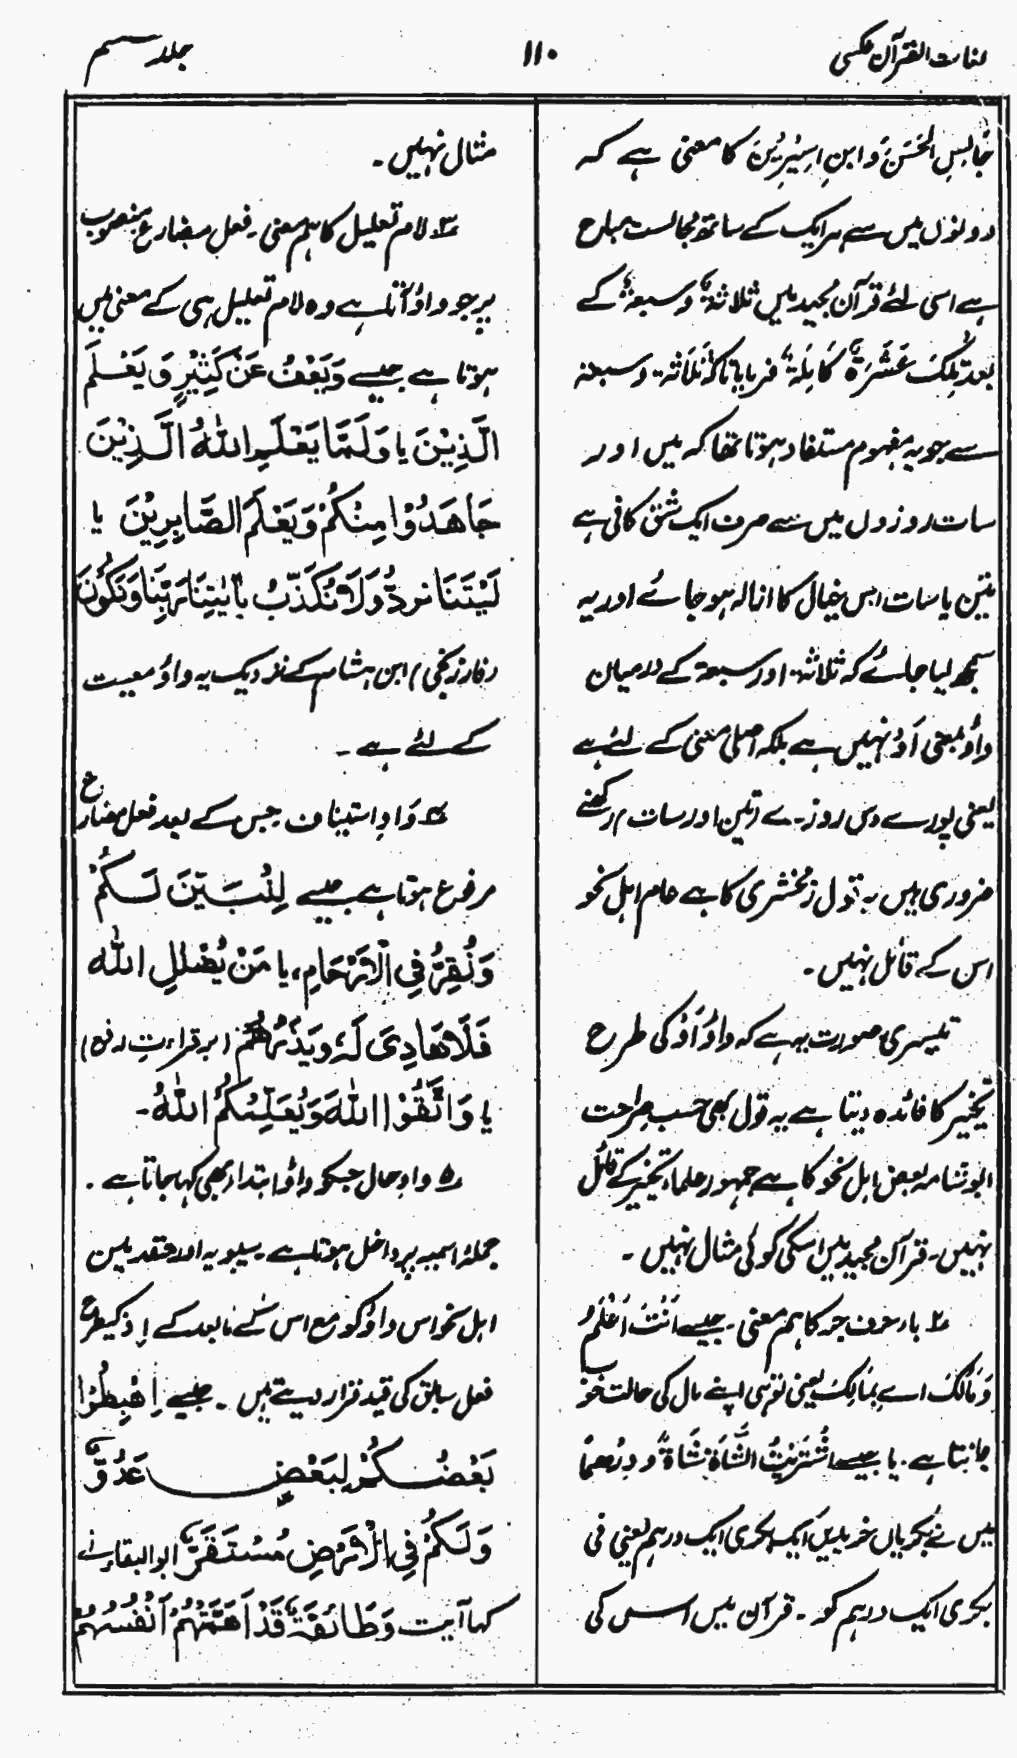 لغات القرآن عکسی
۱۱۰
جلد ششم
جَالِسِ الْحَسَنَ وَ ابنِ اسِیْرِیْنَ کا معنی ہے کہ
دونوں میں سے ہر ایک کے ساتھ مجالست مباح
ہے اسی لئے قرآن مجید میں ثلاثۃٌ وسبعۃٌ کے
بعد تِلْكَ عَشَرَةٌ كَامِلَةٌ فرمایا تاکہ ثَلَاثَۃ و سبعۃ
سے جو یہ مفہوم مستفاد ہوتا تھا کہ میں اور
سات روزوں میں سے صرف ایک شق کافی ہے
تین یا سات اس خیال کا ازالہ ہو جائے اور یہ
سمجھ لیا جائے کہ ثلاثۃ اور سبعۃ کے درمیان
واؤ بمعنی اَوْ نہیں ہے بلکہ اصلی معنی کے لئے ہے
یعنی پورے دس روزے تین اور سات رکھنے
ضروری ہیں یہ قول زمخشری کا ہے عام اہل نحو
اس کے قائل نہیں۔
تیسری صورت یہ ہے کہ واؤ اَوْ کی طرح
تخییر کا فائدہ دیتا ہے یہ قول بھی حسب صراحت
ابو شامہ بعض اہل نحو کا ہے جمہور علماء تخییر کے قائل
نہیں۔ قرآن مجید میں اسکی کوئی مثال نہیں۔
۲؎ باء حرف جر کا ہم معنی۔ جیسے اَنْتَ اَعْلَمُ
وَمَالُكَ اے بِمَالِكَ یعنی تو ہی اپنے مال کی حالت خوب
جانتا ہے۔ یا جیسے اشْتَرَیْتُ الشَّاۃَ شَاۃً و دِرْھمًا
میں نے بکریاں خریدیں ایک بکری ایک درہم یعنی فی
بکری ایک درہم کو۔ قرآن میں اس کی
مثال نہیں۔
۳؎ لام تعلیل کا ہم معنی۔ فعل مضارع منصوب
پر جو واؤ آتا ہے وہ لام تعلیل ہی کے معنی میں
ہوتا ہے جیسے وَيَعْفُ عَنْ كَثِيْرٍ وَّ يَعْلَمَ
الَّذِيْنَ یا وَلَمَّا يَعْلَمِ اللّٰهُ الَّذِيْنَ
جَاهَدُوْا مِنْكُمْ وَيَعْلَمَ الصَّابِرِيْنَ یا
لَيْتَنَا نُرَدُّ وَلَا نُكَذِّبُ بِاٰيٰتِنَا رَبِّنَا وَنَكُوْنَ
(خارزنجی) ابن ہشام کے نزدیک یہ واؤ معیت
کے لئے ہے۔
۴؎ وَاوِ استیناف۔ جس کے بعد فعل مضارع
مرفوع ہوتا ہے جیسے لِنُبَيِّنَ لَكُمْ
وَنُقِرُّ فِي الْاَرْحَامِ، یا مَنْ يُضْلِلِ اللّٰهُ
فَلَا هَادِيَ لَهٗ وَيَذَرُهُمْ (بر قراءتِ رفع)
یا وَاتَّقُوْا اللّٰهَ وَيُعَلِّمُكُمُ اللّٰهُ۔
۵؎ واوِ حال جسکو واوُ ابتدا بھی کہا جاتا ہے۔
جملۂ اسمیہ پر داخل ہوتا ہے۔ سیبویہ اور متقدمین
اہل نحو اس واؤ کو مع اس کے مابعد کے اِذ کیطرح
فعل سابق کی قید قرار دیتے ہیں۔ جیسے اِهْبِطُوْا
بَعْضُكُمْ لِبَعْضٍ عَدُوٌّ
وَلَكُمْ فِي الْاَرْضِ مُسْتَقَرٌّ ابو البقاء نے
کہا آیت وَطَائِفَةٌ قَدْ اَهَمَّتْهُمْ اَنْفُسُهُمْ